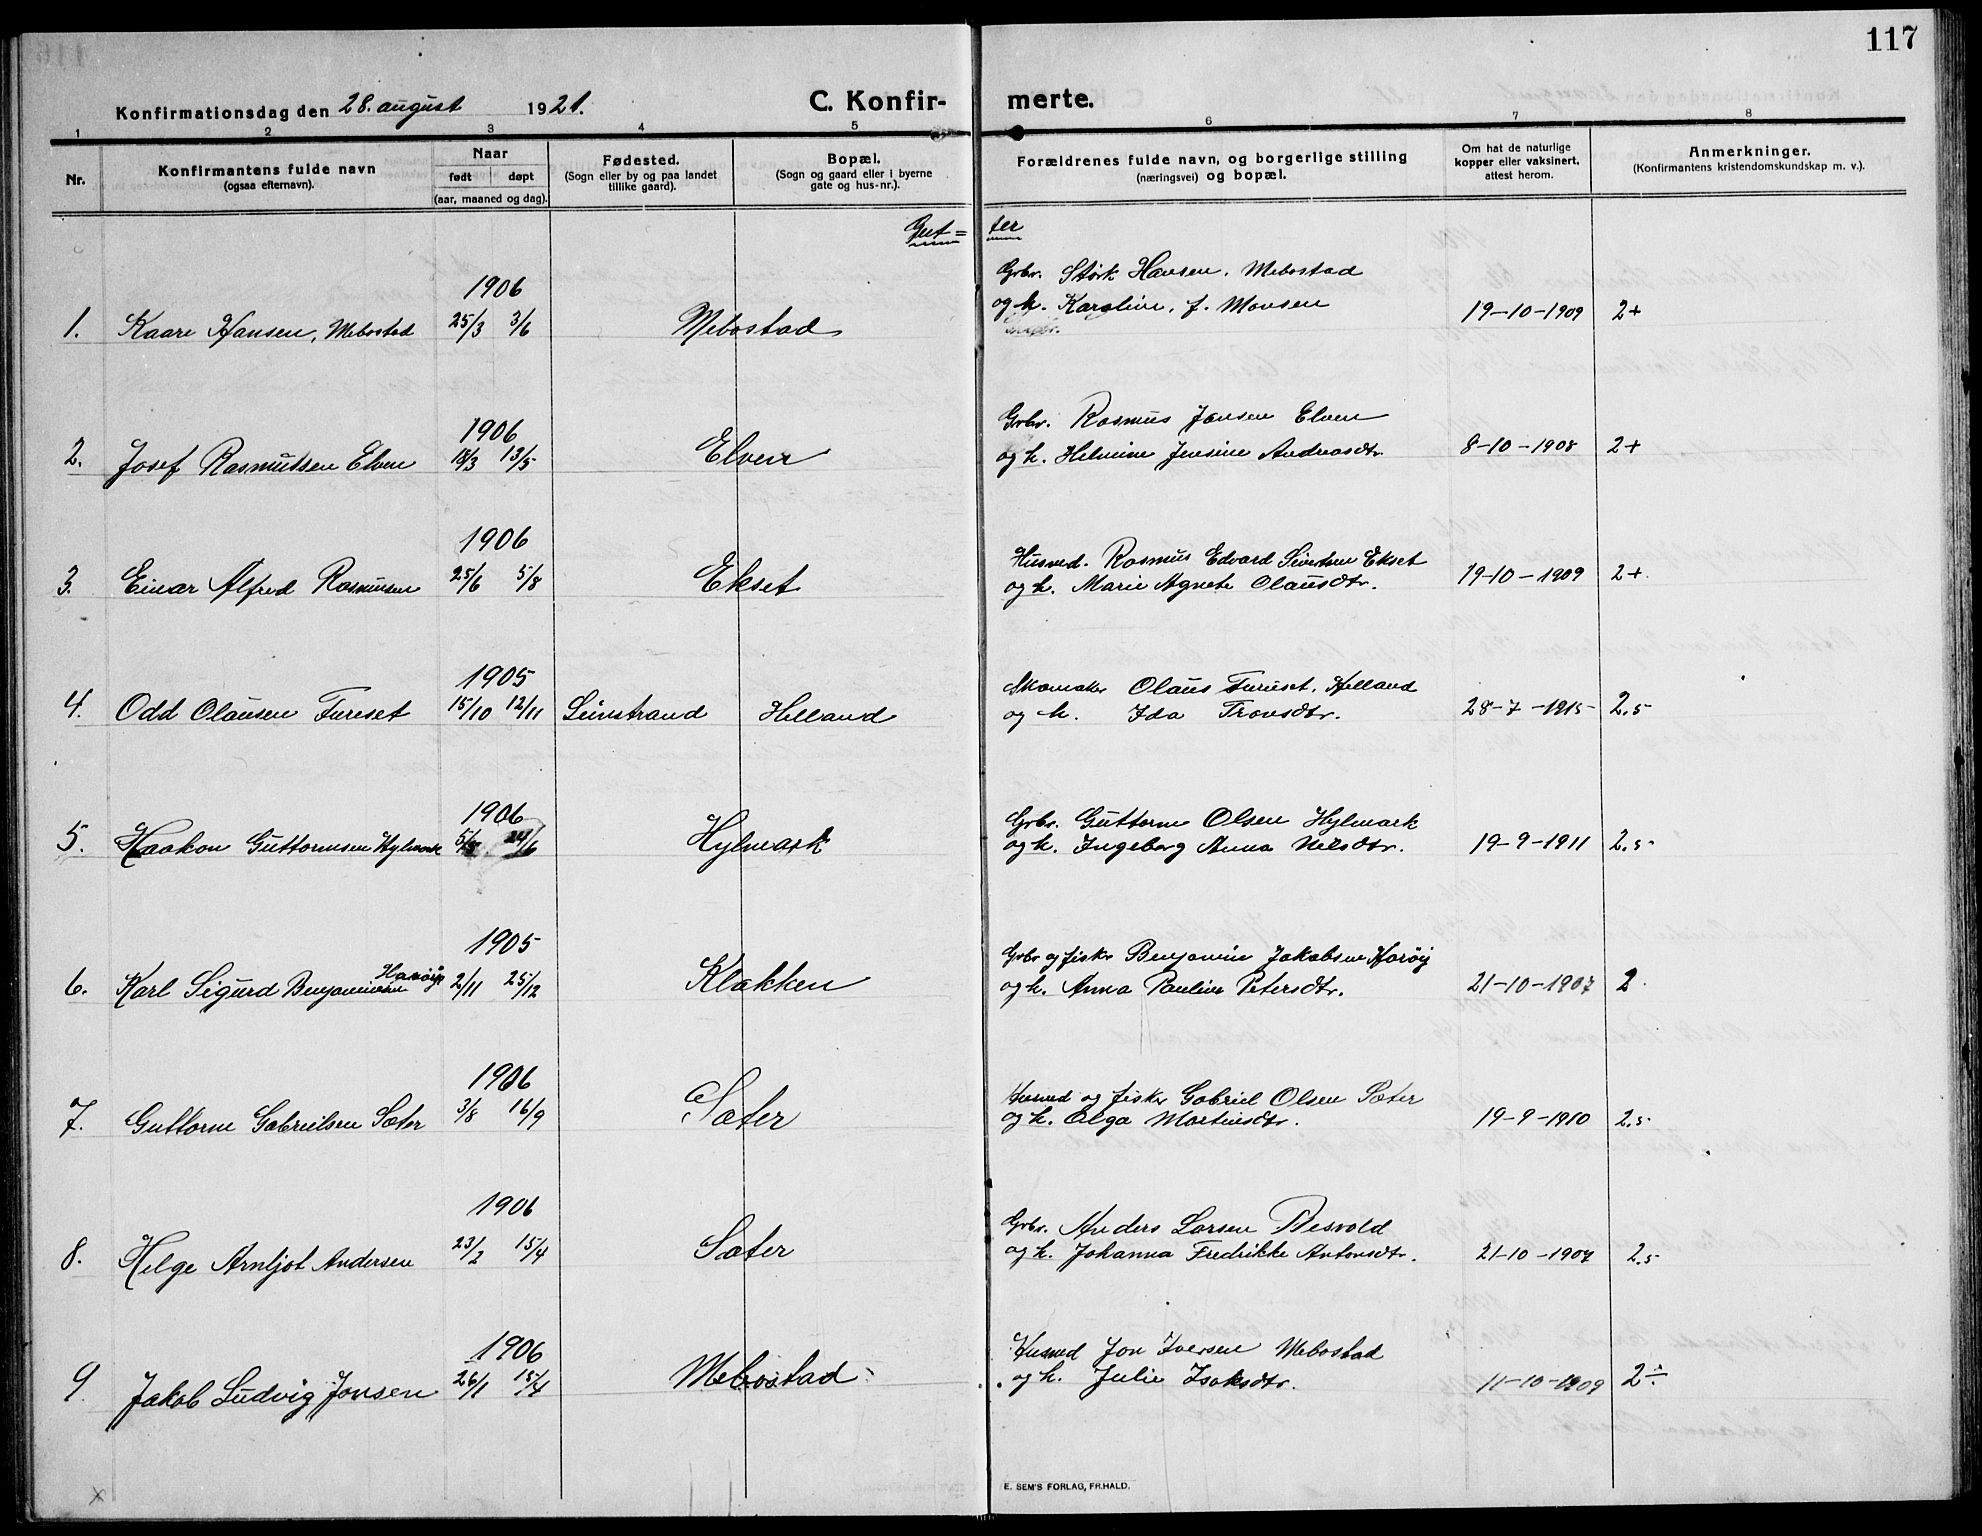 117
Konfirmationsdag den 28. august 1921.
C. Konfir- merte.
1 2 3 4 5 6 7 8
Nr.
Konfirmantens fulde navn
(ogsaa efternavn).
Naar
født døpt
(aar, maaned og dag).
Fødested.
(Sogn eller by og paa landet
tillike gaard).
Bopæl.
(Sogn og gaard eller i byerne
gate og hus-nr.).
Forældrenes fulde navn, og borgerlige stilling
(næringsvei) og bopæl.
Om hat de naturlige
kopper eller vaksinert,
attest herom.
Anmerkninger.
(Konfirmantens kristendomskundskap m. v.).
Gut= ter
1906
Grbr. Størk Hansen, Mebostad
1. Kaare Hansen, Mebostad 25/3 3/6 Mebostad og h. Karoline, f. Monsen 19-10-1909 2+
1906
Grbr. Rasmus Jonsen Elven
2. Josef Rasmussen Elven 18/3 13/5 Elven og h. Helmine Jensine Andreasdtr. 8-10-1908 2+
1906
Husmd. Rasmus Edvard Sivertsen Ekset
3. Einar Alfred Rasmussen 25/6 5/8 Ekset og h. Marie Agnete Olausdtr. 19-10-1909 2+
1905
Skomaker Olaus Fureset, Helland
4. Odd Olausen Fureset 15/10 12/11 Helland og h. Ida 28-7-1915 2,5
1906
Grbr. Guttorm Olsen Hylmark
5. Haakon Guttormsen Hylmark 24/6 Hylmark og h. Ingeborg Anna Nilsdtr. 19-9-1911 2,5
1905
Grbr og fisker Benjamin Jakobsen Harøy
6. Karl Sigurd Benjaminsen Harøy 2/11 25/12 Klokken og h. Anna Pauline Petersdtr. 21-10-1907 2
1906
Husmd og fisker Gabriel Olsen Sæter
7. Guttorm Gabrielsen Sæter 3/8 16/9 Sæter og h. Elga Martinsdtr. 19-9-1910 2,5
1906
Grbr. Anders Larsen
8. Helge Arnljot Andersen 23/2 15/4 Sæter og h. Johanna Fredrikke Antonsdtr. 21-10-1907 2,5
1906
Husmd Jon Iversen Mebostad
9. Jakob Ludvig Jonsen 26/1 15/4 Mebostad og h. Julie Isaksdtr. 11-10-1909 2÷
E. SEM'S FORLAG, FR.HALD.